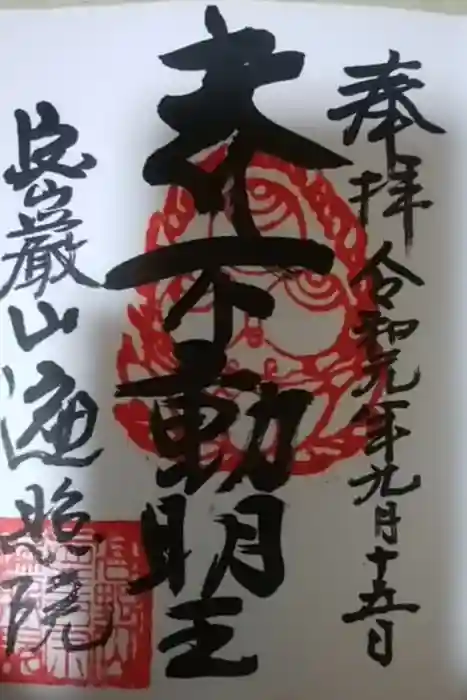 奉拝 令和元年九月十五日
赤不動明王
巌山遍照院